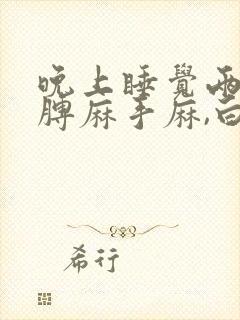 晚上睡覺兩
膊麻手麻,白
希行